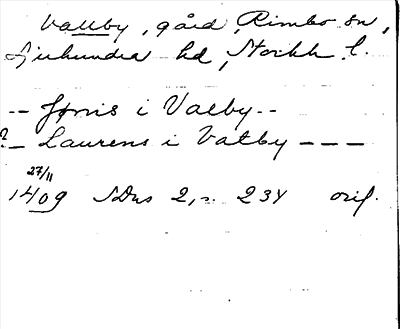 Vallby, gård, Rimbo sn,
Sjuhundra hd, Stockh. l.
-- Jønis i Valby --
?-- Laurens i Valby ---
27/11
1409 SDns 2, s. 234 orig.